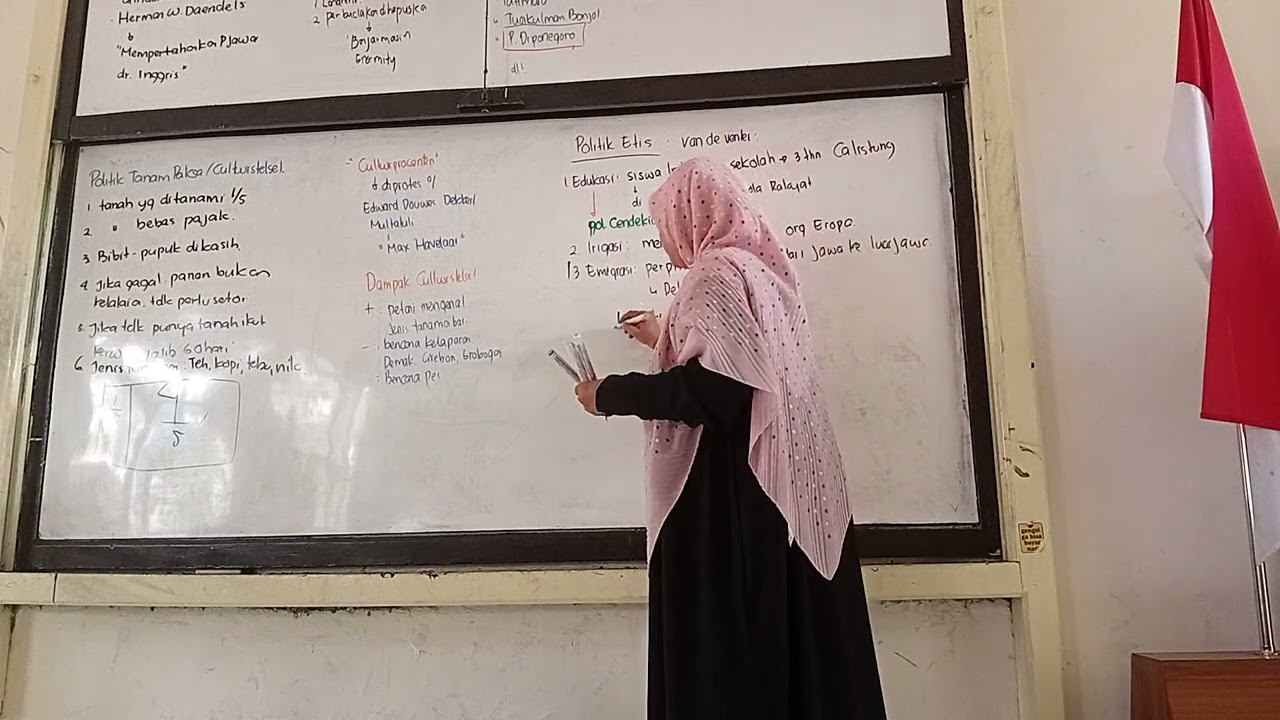 Herman W. Daendels
"Mempertahankan P.Jawa
dr. Inggris"
2
Banjarmasin
Tuanku Iman Bonjol
P. Diponegoro
dll
Politik Tanam Paksa/Culturstelsel
1. tanah yg ditanami 1/5
2. " bebas pajak.
3. Bibit - pupuk dikasih
4. Jika gagal panen bukan
kelalaia, tdk perlu setor
5. Jika tdk punya tanah ikut
60 hari
6. Jenis : Teh, kopi, tebu, nila
1/5
"Culturprocenten"
diprotes o/
Edward Douwes Dekker/
Multatuli
"Max Havelaar"
Dampak Culturstelsel
+ : Petani mengenal
Jenis tanama bar.
- : bencana kelaparan
Demak, Cirebon, Grobogan
: Bencana Pes
Politik Etis : van de venter.
1. Edukasi : siswa sekolah → 3 thn Calistung
di Rakyat
pol Cendeki
2. Irigasi : me org Eropa.
3 Emigrasi : perp Jawa ke luar Jawa.
↳ De
gengsi
ga bisa
bayar